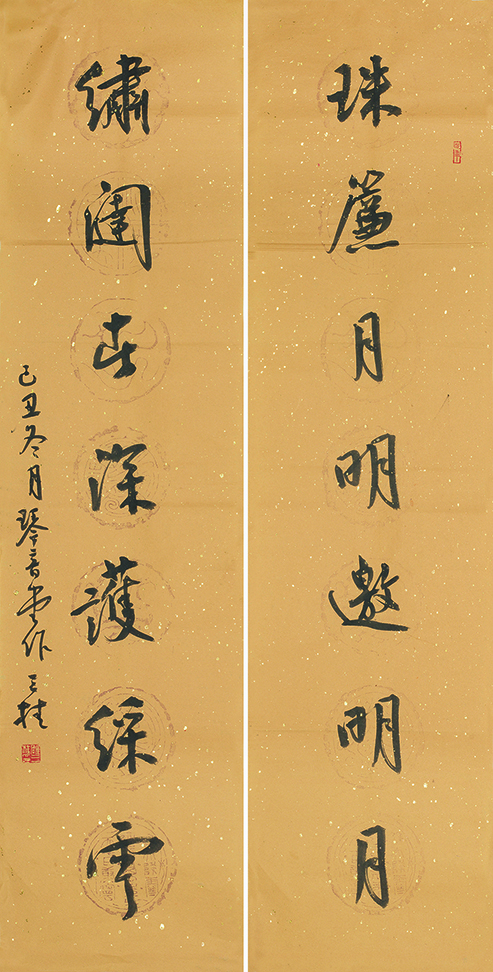 珠簾月明邀明月
繡闥春深護綵雲
己丑冬月琴音堂作